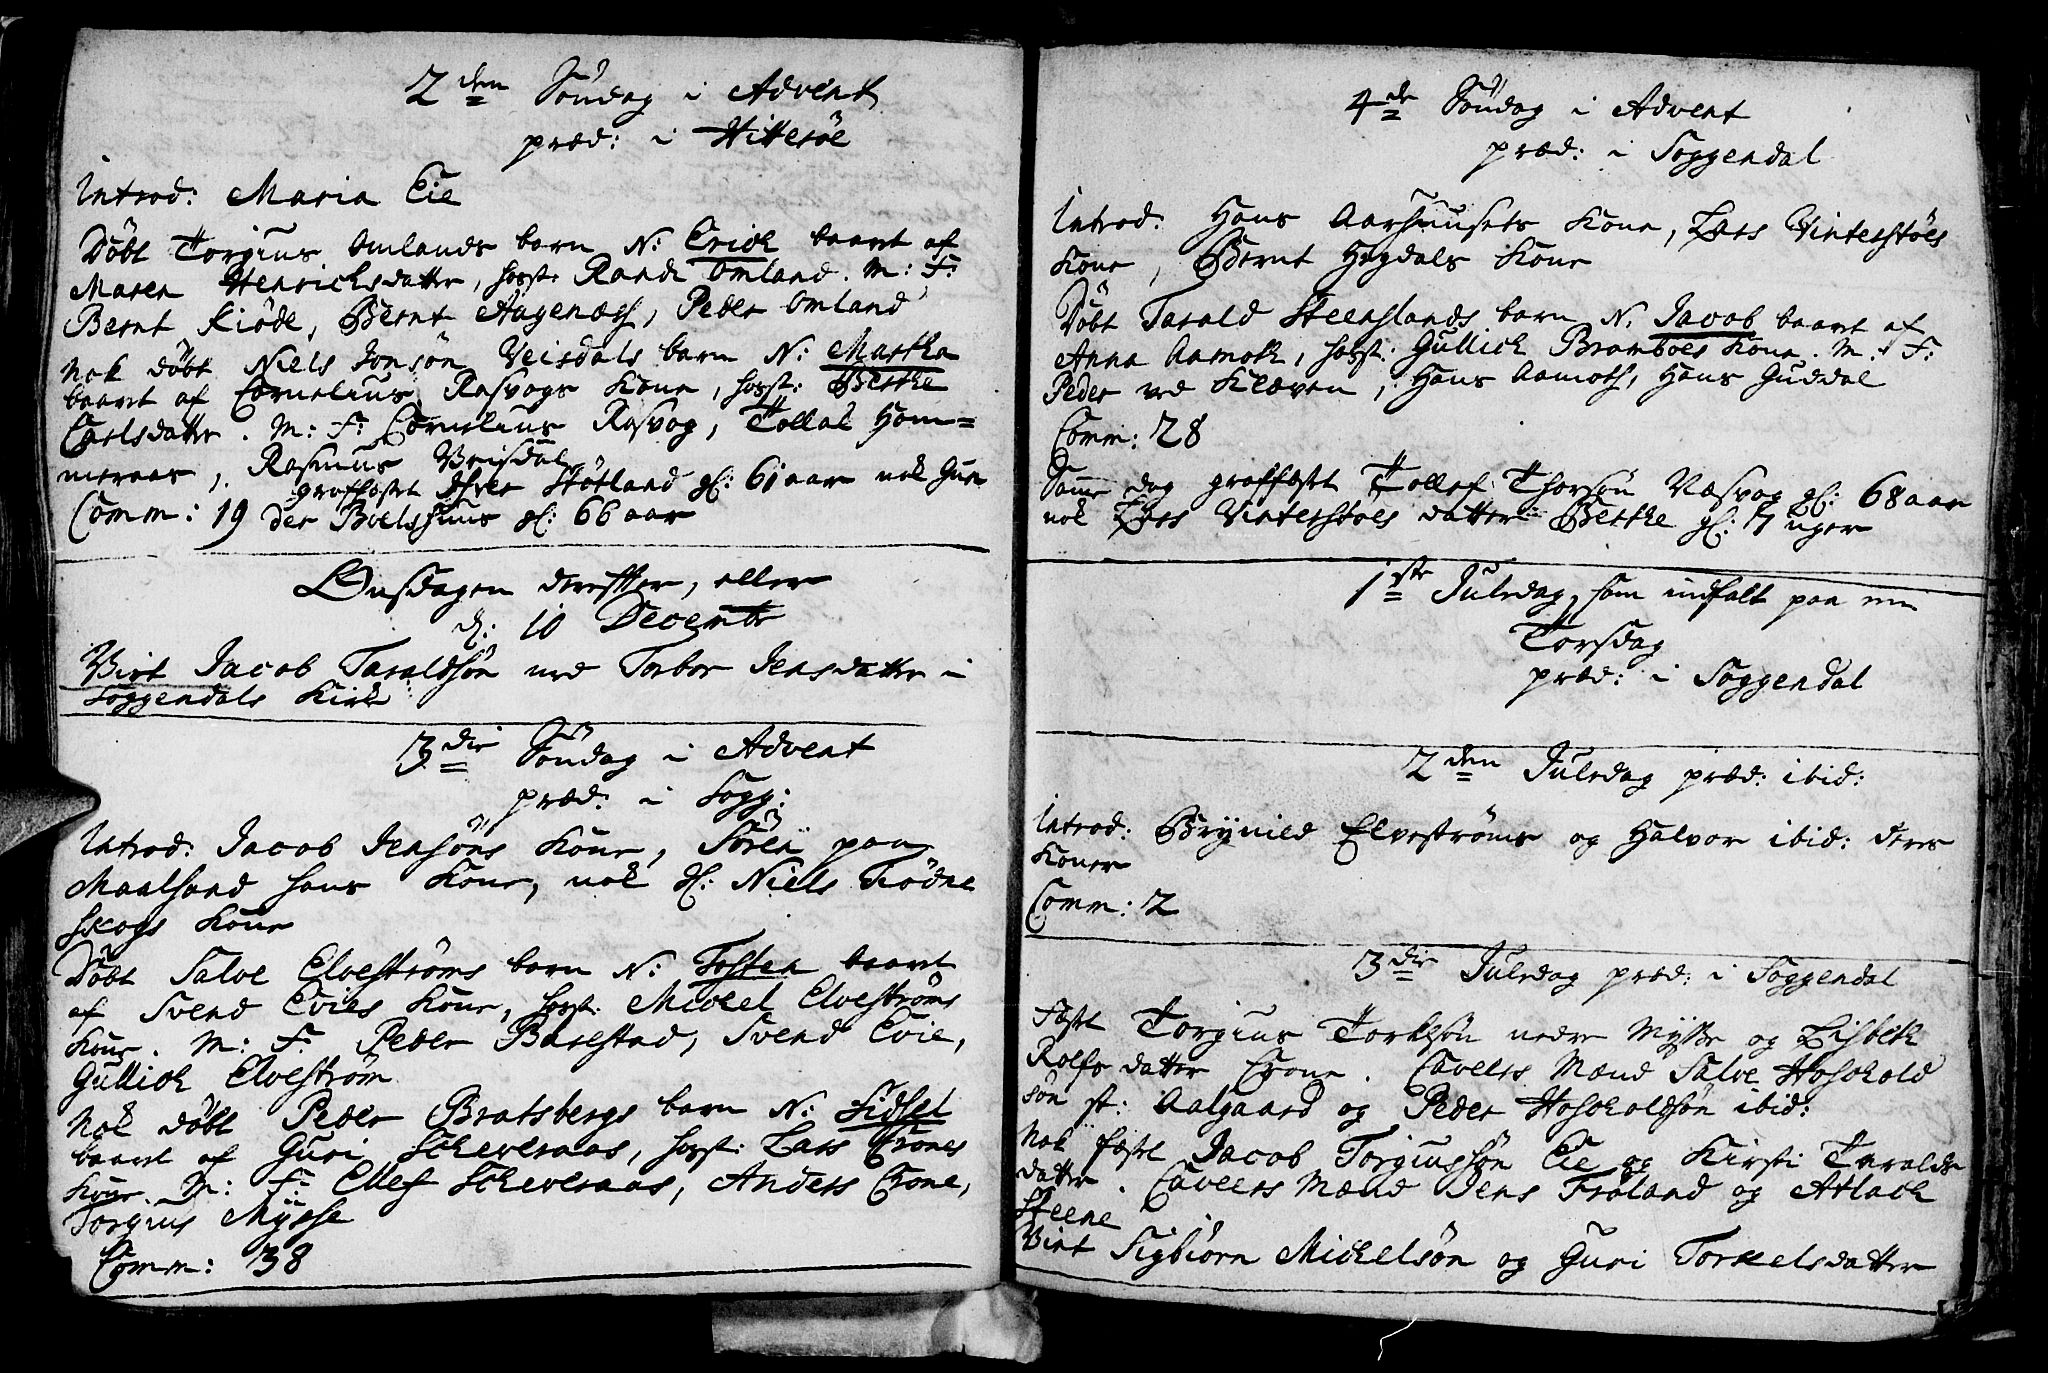 2den Söndag i Advent
præd: i Hittesöe
Introd: Maria Eie
Döbt Torgius Omlands barn N: Erich baaret af
Maren Henrichsdatter, hosst: Randi Omland. M: F:
Bernt Kiöde, Bernt Aagenæs, Peder Omland
Nok döbt Niels Jonsön Veisdals barn N: Martha
baaret af Cornelius Rasvogs Kone, hosst: Berthe
Carlsdatter. M: F: Cornelius Rasvog, Tollal Hom=
meraas, Rasmus Veisdal
graffæstet Stötland gl: 61 aar nok Gun
Comm: 19 der Boelshuus gl: 66 aar
Onsdagen derefter, eller
d: 10 Decembr
Viet Jacob Taraldsön med Torbor Jensdatter i
Soggendals Kirke
3die Söndag i Advent
præd: i Sogg:
Introd: Jacob Jensöns Kone, Sören paa
Maalsand hans Kone, nok gl: Niels Födne
skogs Kone
Döbt Salve Elveströms barn N: Tosten baaret
af Svend Evies Kone, hosst: Mickel Elveströms
Kone. M: F: Peder Barstad, Svend Evie,
Gullich Elveström
Nok döbt Peder Bratsbergs barn N: Sidsel
baaret af Guri Scheveraas, hosst: Lars Erones
Kone. M: F: Ellef Scheveraas, Anders Erone,
Torgius Mysse
Comm: 38
4de Söndag i Advent
præd: i Soggendal
Introd: Hans Aarhuusets Kone, Lars Vinterstöes
Kone, Bernt Hegdals Kone
Döbt Tarald Steenslands barn N: Jacob baaret af
Anna Aamoth, hosst: Gullich Bramboes Kone. M: F:
Peder ved Kleven, Hans Aamoth, Hans Guddal
Comm: 28
Samme dag graffæstet Tollef Thorsön Næsvog gl: 68 aar
nok Lars Vinterstöes datter Berthe gl: 7 uger
1ste Juledag, som indfalt paa en
Torsdag
præd: i Soggendal
2den Juledag præd: ibid:
Introd: Brynild Elveströms og Halvor ibid: deres
Koner
Comm: 2
3die Juledag præd: i Soggendal
Fæst Torgius Torkelsön nedre Mysse og Lisbeth
Rolfsdatter Erone. Caveers Mænd Salve Hoskold
sön st: Aalgaard og Peder Hoskoldsön ibid:
Nok fæst Jacob Torgiussön Eie og Kirsti Taralds
datter. Caveers Mænd Jens Fröland og Atlach
Steene
Viet Sigbiörn Mickelsön og Guri Torkelsdatter